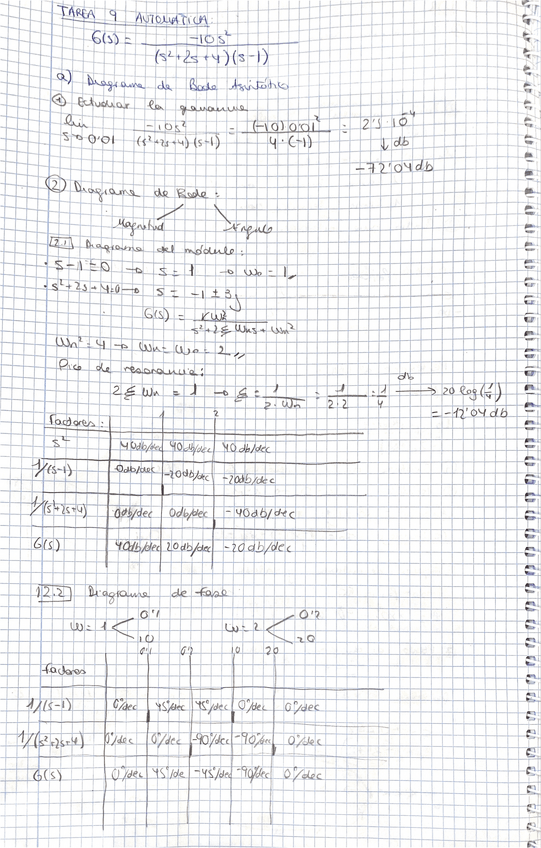 TAREA 9 AUTOMÁTICA
G(s) = -10s² / (s²+2s+4)(s-1)
a) Diagrama de Bode Asintótico
① Estudiar la ganancia
lim s→0'01 -10s² / (s²+2s+4)(s-1) = (-10)0'01² / 4·(-1) = 2'5·10⁻⁴
↓ db
-72'04db
② Diagrama de Bode:
Magnitud Ángulo
2.1 Diagrama del módulo:
· s-1=0 → s=1 → ω₀=1,,
· s²+2s+4=0 → s = -1 ± 3j
G(s) = kω² / s²+2ξωns+ωn²
ωn²=4 → ωn=ω₀=2,,
Pico de resonancia:
2ξωn = 1 → ξ = 1/2·ωn = 1/2·2 = 1/4 db → 20 log(1/4)
= -12'04db
1 2
Factores:
s² 40db/dec 40db/dec 40db/dec
1/(s-1) 0db/dec -20db/dec -20db/dec
1/(s²+2s+4) 0db/dec 0db/dec -40db/dec
G(s) 40db/dec 20db/dec -20db/dec
2.2 Diagrama de fase
ω=1 0'1 10 ω=2 0'2 20
0'1 0'2 10 20
factores
1/(s-1) 0º/dec 45º/dec 45º/dec 0º/dec 0º/dec
1/(s²+2s+4) 0º/dec 0º/dec -90º/dec -90º/dec 0º/dec
G(s) 0º/dec 45º/de -45º/dec -90º/dec 0º/dec